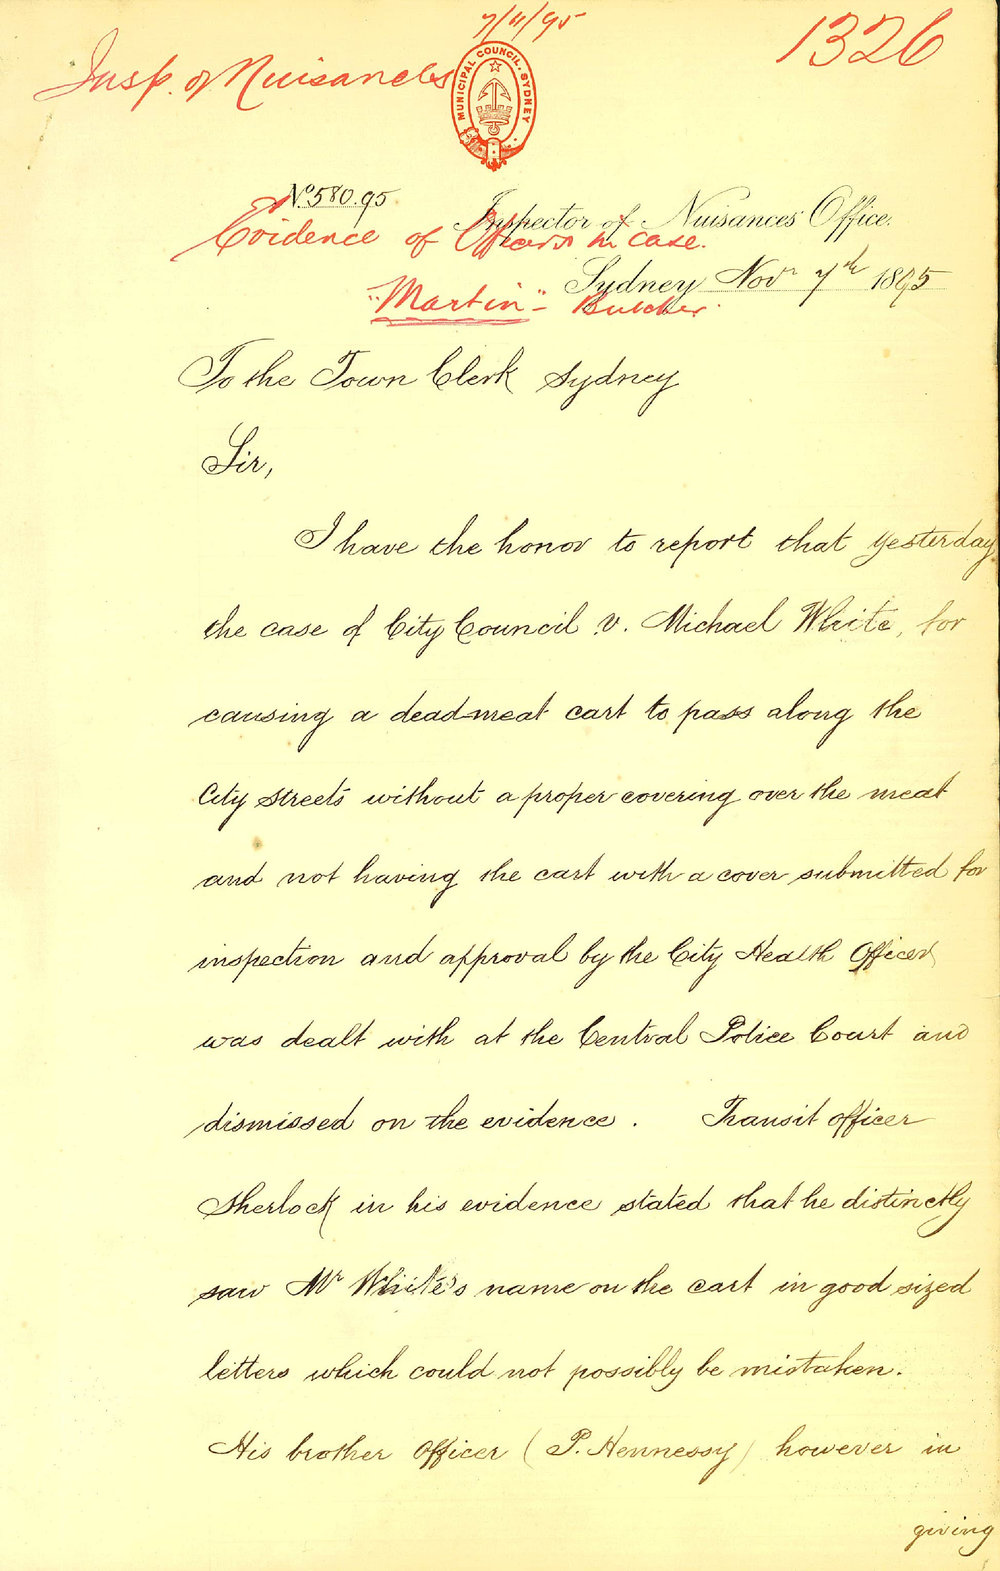 7/11/95
1326
Insp. of Nuisances
MUNICIPAL COUNCIL. SYDNEY
No. 580.95
Inspector of Nuisances' Office.
Evidence of Officers in case.
Sydney Novr 7th 1895
"Martin" - Butcher.
To the Town Clerk Sydney
Sir,
I have the honor to report that yesterday
the case of City Council v. Michael White, for
causing a dead meat cart to pass along the
City Streets without a proper covering over the meat
and not having the cart with a cover submitted for
inspection and approval by the City Health Officer
was dealt with at the Central Police Court and
dismissed on the evidence. Transit officer
Sherlock in his evidence stated that he distinctly
saw Mr White's name on the cart in good sized
letters which could not possibly be mistaken.
His brother Officer (P. Hennessy) however in
giving